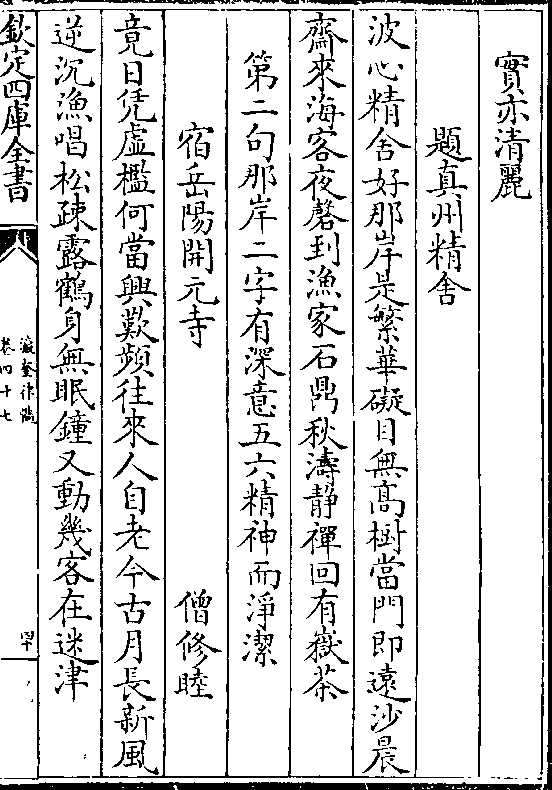 實亦清麗
題真州精舍
波心精舍好那岸是繁華礙目無髙樹當門即遠沙晨
齋來海客夜磬到漁家石鼎秋濤靜禪回有嶽茶
第二句那岸二字有深意五六精神而淨潔
宿岳陽開元寺 僧修睦
竟日凭虛檻何當興歎頻往來人自老今古月長新風
逆沉漁唱松疎露鶴身無眠鐘又動幾客在迷津
欽定四庫全書
瀛奎律髓
卷四十七
罕